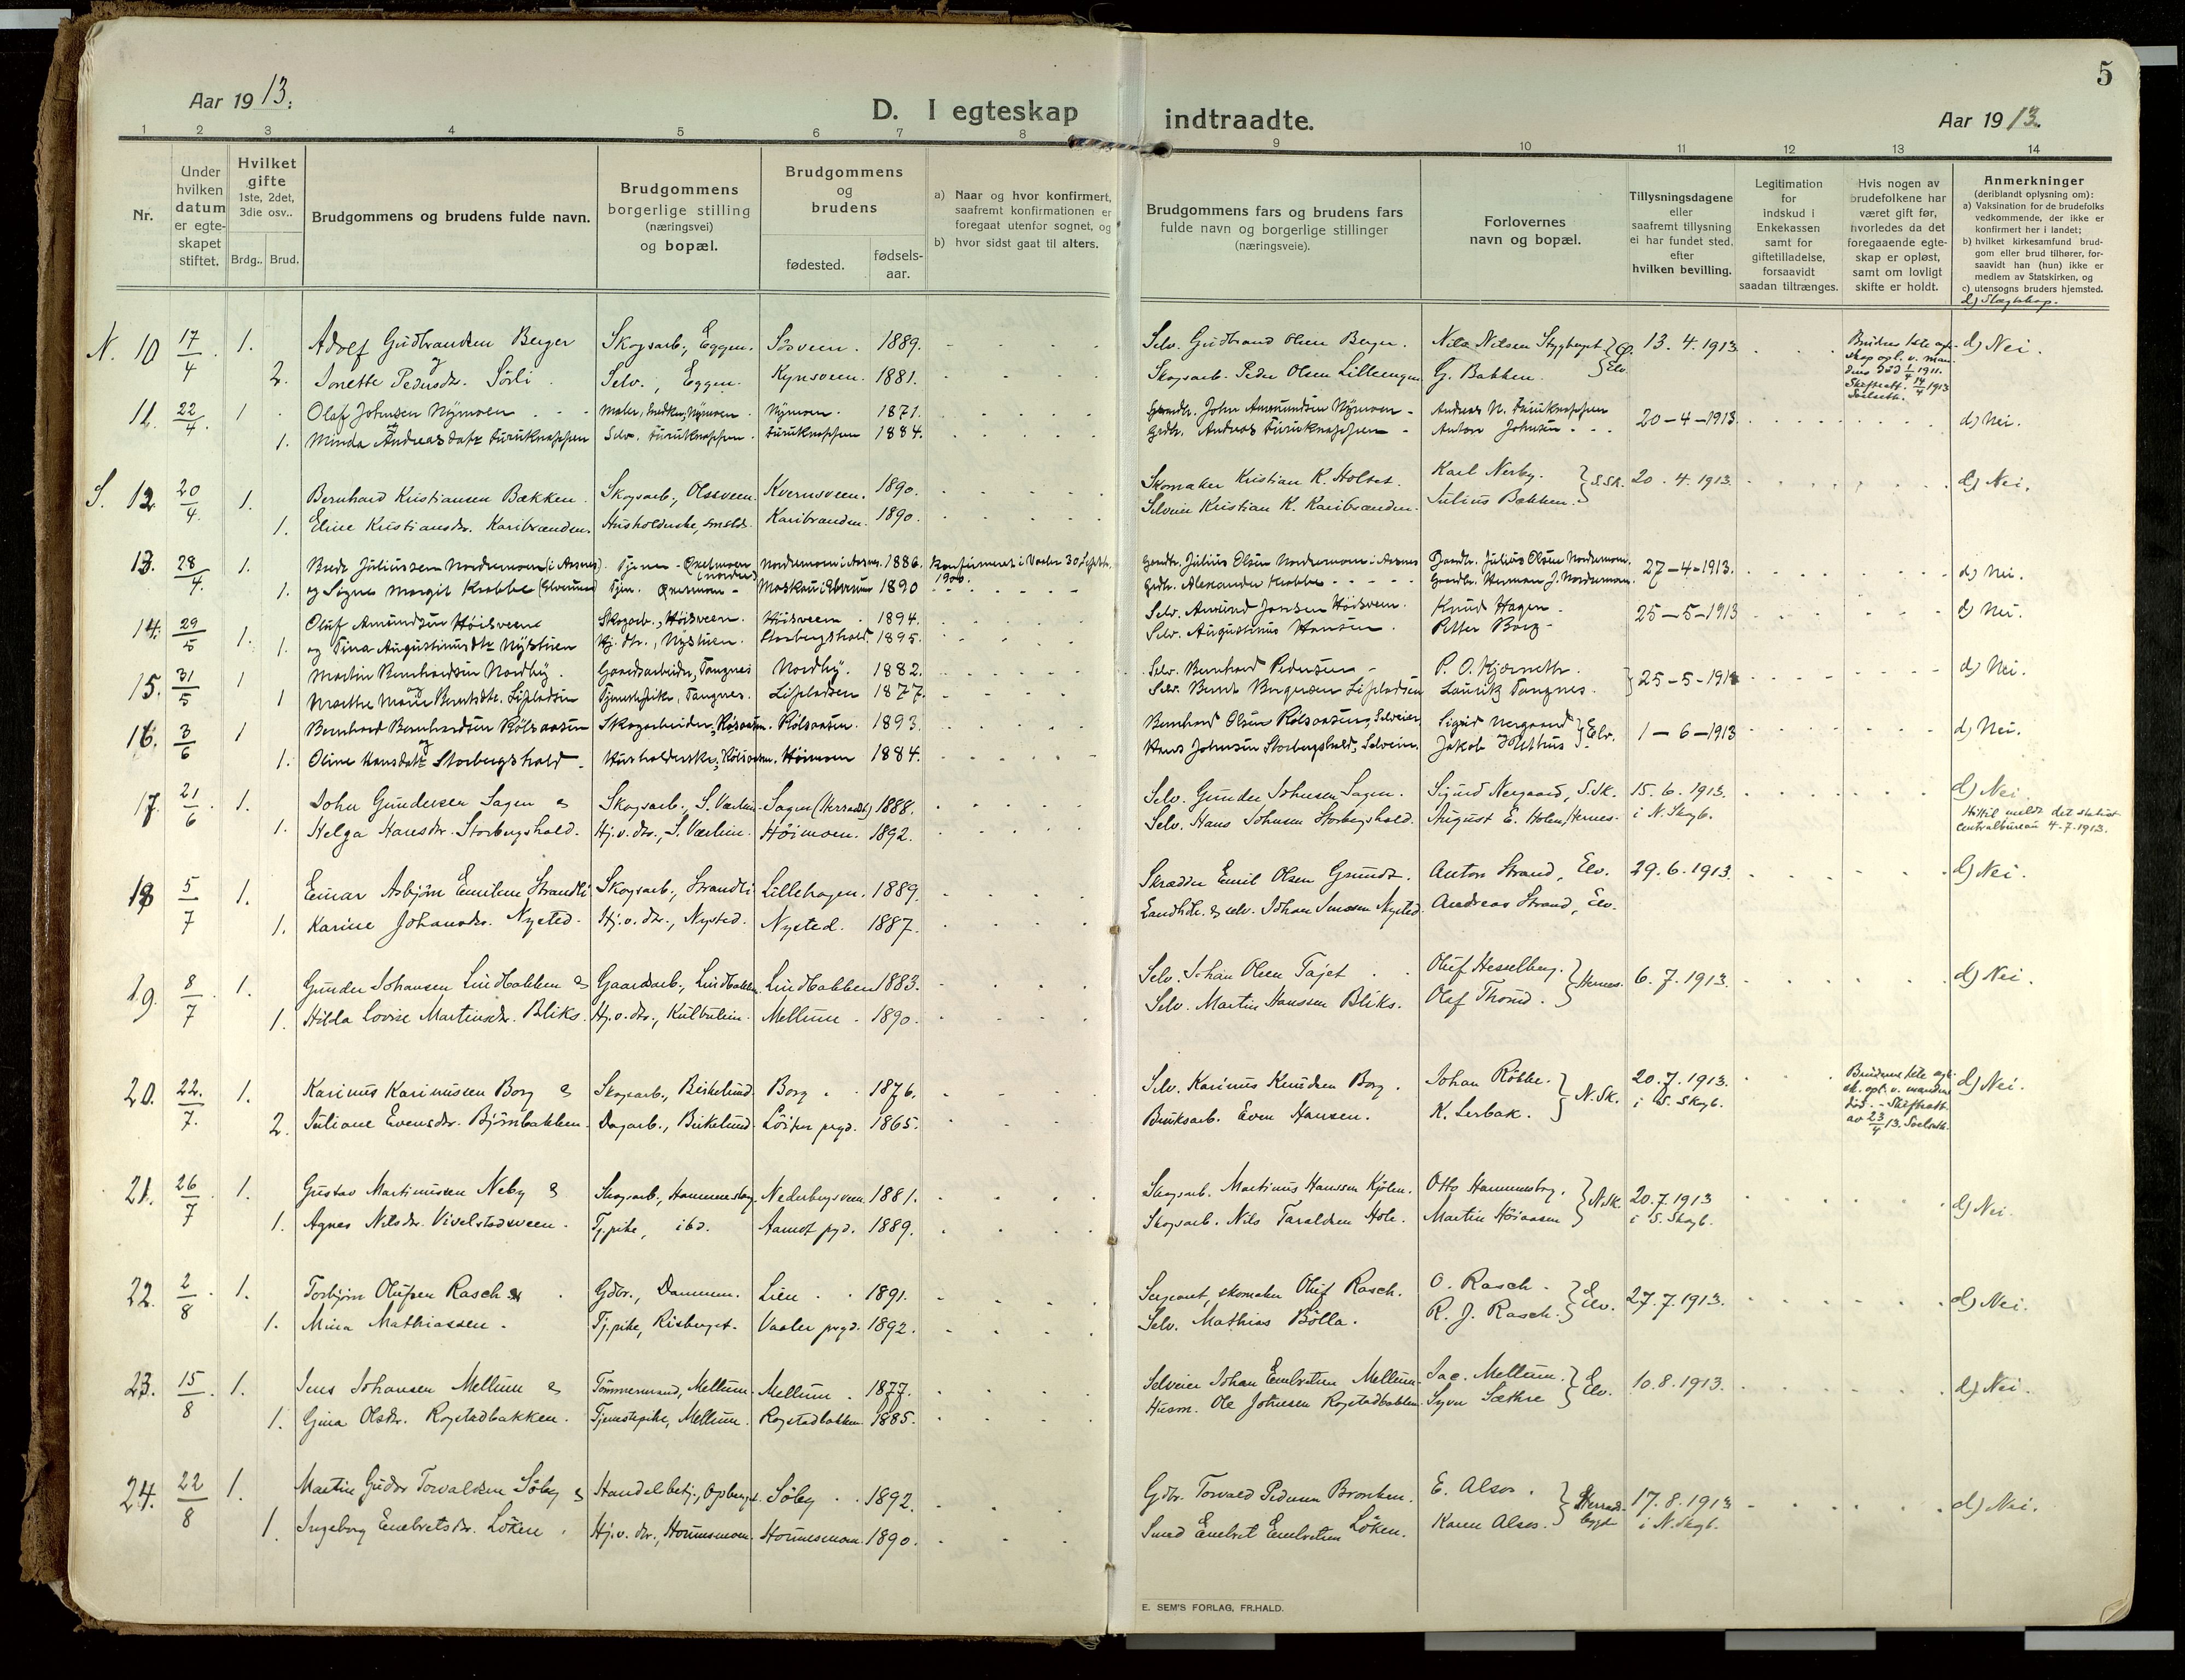 5
Aar 1913.
D. I egteskap indtraadte.
Aar 1913.
1 2 3 4 5 6 7 8 9 10 11 12 13 14
Nr.
Under hvilken datum er egteskapet stiftet.
Hvilket gifte
1ste, 2det, 3die osv..
Brdg.. Brud.
Brudgommens og brudens fulde navn.
Brudgommens borgerlige stilling (næringsvei) og bopæl.
Brudgommens og brudens
fødested. fødsels-aar.
a) Naar og hvor konfirmert, saafremt konfirmationen er foregaat utenfor sognet, og
b) hvor sidst gaat til alters.
Brudgommens fars og brudens fars fulde navn og borgerlige stillinger (næringsveie).
Forlovernes navn og bopæl.
Tillysningsdagene eller saafremt tillysning ei har fundet sted. efter hvilken bevilling.
Legitimation for indskud i Enkekassen samt for giftetilladelse, forsaavidt saadan tiltrænges.
Hvis nogen av brudefolkene har været gift før, hvorledes da det foregaaende egteskap er opløst, samt om lovligt skifte er holdt.
Anmerkninger
(deriblandt oplysning om):
a) Vaksination for de brudefolks vedkommende, der ikke er konfirmert her i landet;
b) hvilket kirkesamfund brudgom eller brud tilhører, forsaavidt han (hun) ikke er medlem av Statskirken, og
c) utensogns bruders hjemsted.
d) Slægtskap.
N. 10 17/4 1. Adolf Gudbrandsen Berger Skogsarb., Eggen. Sösveen. 1889. Selv. Gudbrand Olsen Berger. Nils Nilsen Stygberget 13.4.1913. d) Nei.
og
2. Jonette Pedersdr. Sörli Selv., Eggen. Kynsveen. 1881. Skogsarb. Peder Olsen Lilleengen G. Bakken. Elv.
11. 22/4 1 Olaf Johnsen Nymoen Maler, snedker, Nymoen. Nymoen. 1871. Gaardbr. John Amundsen Nymoen Andreas N. Furuknappen 20-4-1913. d) Nei.
1. Minda Andreasdatr Furuknappen Selv. Furuknappen. Furuknappen 1884. Grdbr. Andreas Furuknappen Anton Johnsen
S. 12. 20/4 1. Bernhard Kristiansen Bækken. Skogsarb., Olssveen. Kvernsveen. 1890. Skomaker Kristian K. Holset. Karl Nerby. S.Sk. 20.4.1913. d) Nei.
1. Eline Kristiansdr. Karibrænden. Husholderske, smstds. Karibrænden. 1890. Selveier Kristian K. Karibrænden. Julius Bækken.
13. 28/4 1. Juliussen Nordermoen (i Aasnes) Tjener - Nordermoen i Aasnes. 1886. Konfirmeret i Vaaler 30 Septb. 1900. Gaardbr. Julius Olsen Nordermoen i Aasnes Gaardbr. Julius Olsen Nordermoen. 27-4-1913. d) Nei.
1. og Signe Margit Krabbe (Elverum) Tjen. Moskau i Elverum 1890 Grdbr. Alexander Krabbe Gaardbr. Herman J. Nordermoen.
14. 29/5 1. Oluf Amundsen Höisveen Skogarb., Höisveen. Höisveen. 1894. Selv. Amund Jonsen Höisveen. Knud Hagen. 25-5-1913 d) Nei.
1. og Tina Augustinusdtr Nystuen Hj. dtr., Nystuen. Storbergshold. 1895. Selv. Augustinus Hansen. Petter Borg.
15. 31/5 1 Martin Bernhardsen Nordby. Gaardsarbeider, Tangnes Nordby. 1882. Selv. Bernhard Pedersen P. O. Kjærneth. 25-5-1913 d) Nei.
og
1 Marthe Marie Berntsdtr. Lipladsen Tjenestepike, Tangnes. Lipladsen 1877. Selv. Bernt Borgersen Lipladsen Lauritz Tangnes.
16. 3/6 1 Bernhard Bernhardsen Rölsaasen Skogarbeider, Rölsaasen. Rölsaasen. 1893. Bernhard Olsen Rölsaasen, Selveier Sigrid Nergaard Elv. 1-6-1913 d) Nei.
og
1. Oline Hansdatr Storbergshold. Husholderske, Rölsaasen. Höimoen 1884. Hans Johnsen Storbergshold, Selveier. Jakob Holthus
17. 21/6 1. John Gundersen Sagen & Skogsarb., S. Værlien. Sagen (Herradb) 1888. Selv. Gunder Johnsen Sagen. Sigurd Nergaard, S.Sk. 15.6.1913. d) Nei.
1. Helga Hansdr. Storbergshold. Hj.v. dtr., S. Værlien. Höimoen. 1892. Selv. Hans Johnsen Storbergshold. August E. Holen, Hernes. i N. Skogb. Hittil meldt det statist. centralbureau 4.7.1913.
18 5/7 1. Einar Asbjörn Emilsen Strandli Skogsarb., Strandli Lillehagen. 1889. Skrædder Emil Olsen Grundt. Anton Strand, Elv. 29.6.1913. d) Nei.
1. Karine Johansdr. Nysted. Hj.v. dtr., Nysted. Nysted. 1887. Landhdl. & selv. Johan Nysted. Andreas Strand, Elv.
19. 8/7 1. Gunder Johansen Lindbakken & Gaardsarb., Lindbakken. Lindbakken 1883. Selv. Johan Olsen Tajet. Oluf Hesselberg. Hernes. 6.7.1913. d) Nei.
1. Hilda Lovise Martinsdr. Bliks. Hj.v. dtr., Kulbulien. Mellum. 1890. Selv. Martin Hanssen Bliks. Olaf Thorud.
20. 22/7. 1. Karinus Karinussen Borg & Skogsarb., Birkelund. Borg. 1876. Selv. Karinus Knudsen Borg. Johan Röbbe. N.Sk. 20.7.1913. d) Nei.
2. Juliane Evensdr. Björnbakken. Dagarb., Birkelund. Löiten prgd. 1865. Bruksarb. Even Hansen. K. Lerbak. i S. Skogb.
21. 26/7 1. Gustav Martinussen Neby & Skogsarb., Hammersborg. Nederbergsveen. 1881. Skogsarb. Martinus Hanssen Kjölen. Otto Hammersborg. N.Sk. 20.7.1913 d) Nei.
1. Agnes Nilsdr. Vivelstadsveen. Tj.pike, ibd. Aamot pgd. 1889. Skogsarb. Nils Taraldsen Hole. Martin Höiaasen i S. Skogb.
22. 2/8 1. Torbjörn Olufsen Rasch & Gdbr., Dammen. Lien. 1891. Sergeant, skomaker Oluf Rasch. O. Rasch. Elv. 27.7.1913. d) Nei.
1. Mina Mathiassen. Tj.pike, Risberget. Vaaler prgd. 1892. Selv. Mathias Bölla. R. J. Rasch.
23. 15/8 1. Jens Johansen Mellum & Tömmermand, Mellum. Mellum. 1877. Selveier Johan Embretsen Mellum. Jac. Mellum. Elv. 10.8.1913. d) Nei.
1. Gina Olsdr. Rogstadbakken. Tjenestepike, Mellum. Rogstadbakken 1885. Husm. Ole Johnsen Rogstadbakken. Syver Sæthre
24. 22/8 1. Martin Gudor Torvaldsen Söby & Handelsbetj., Söby. 1892. Gdbr. Torvald Pedersen Bronken. E. Alsos. Herradsbygd 17.8.1913 d) Nei.
1. Ingeborg Embretsdr. Löken. Hj.v. dtr., Hornesmoen. Hornesmoen. 1890. Smed Embret Embretsen Löken. Karen Alsos. i N. Skogb.
E. SEM'S FORLAG, FR.HALD.